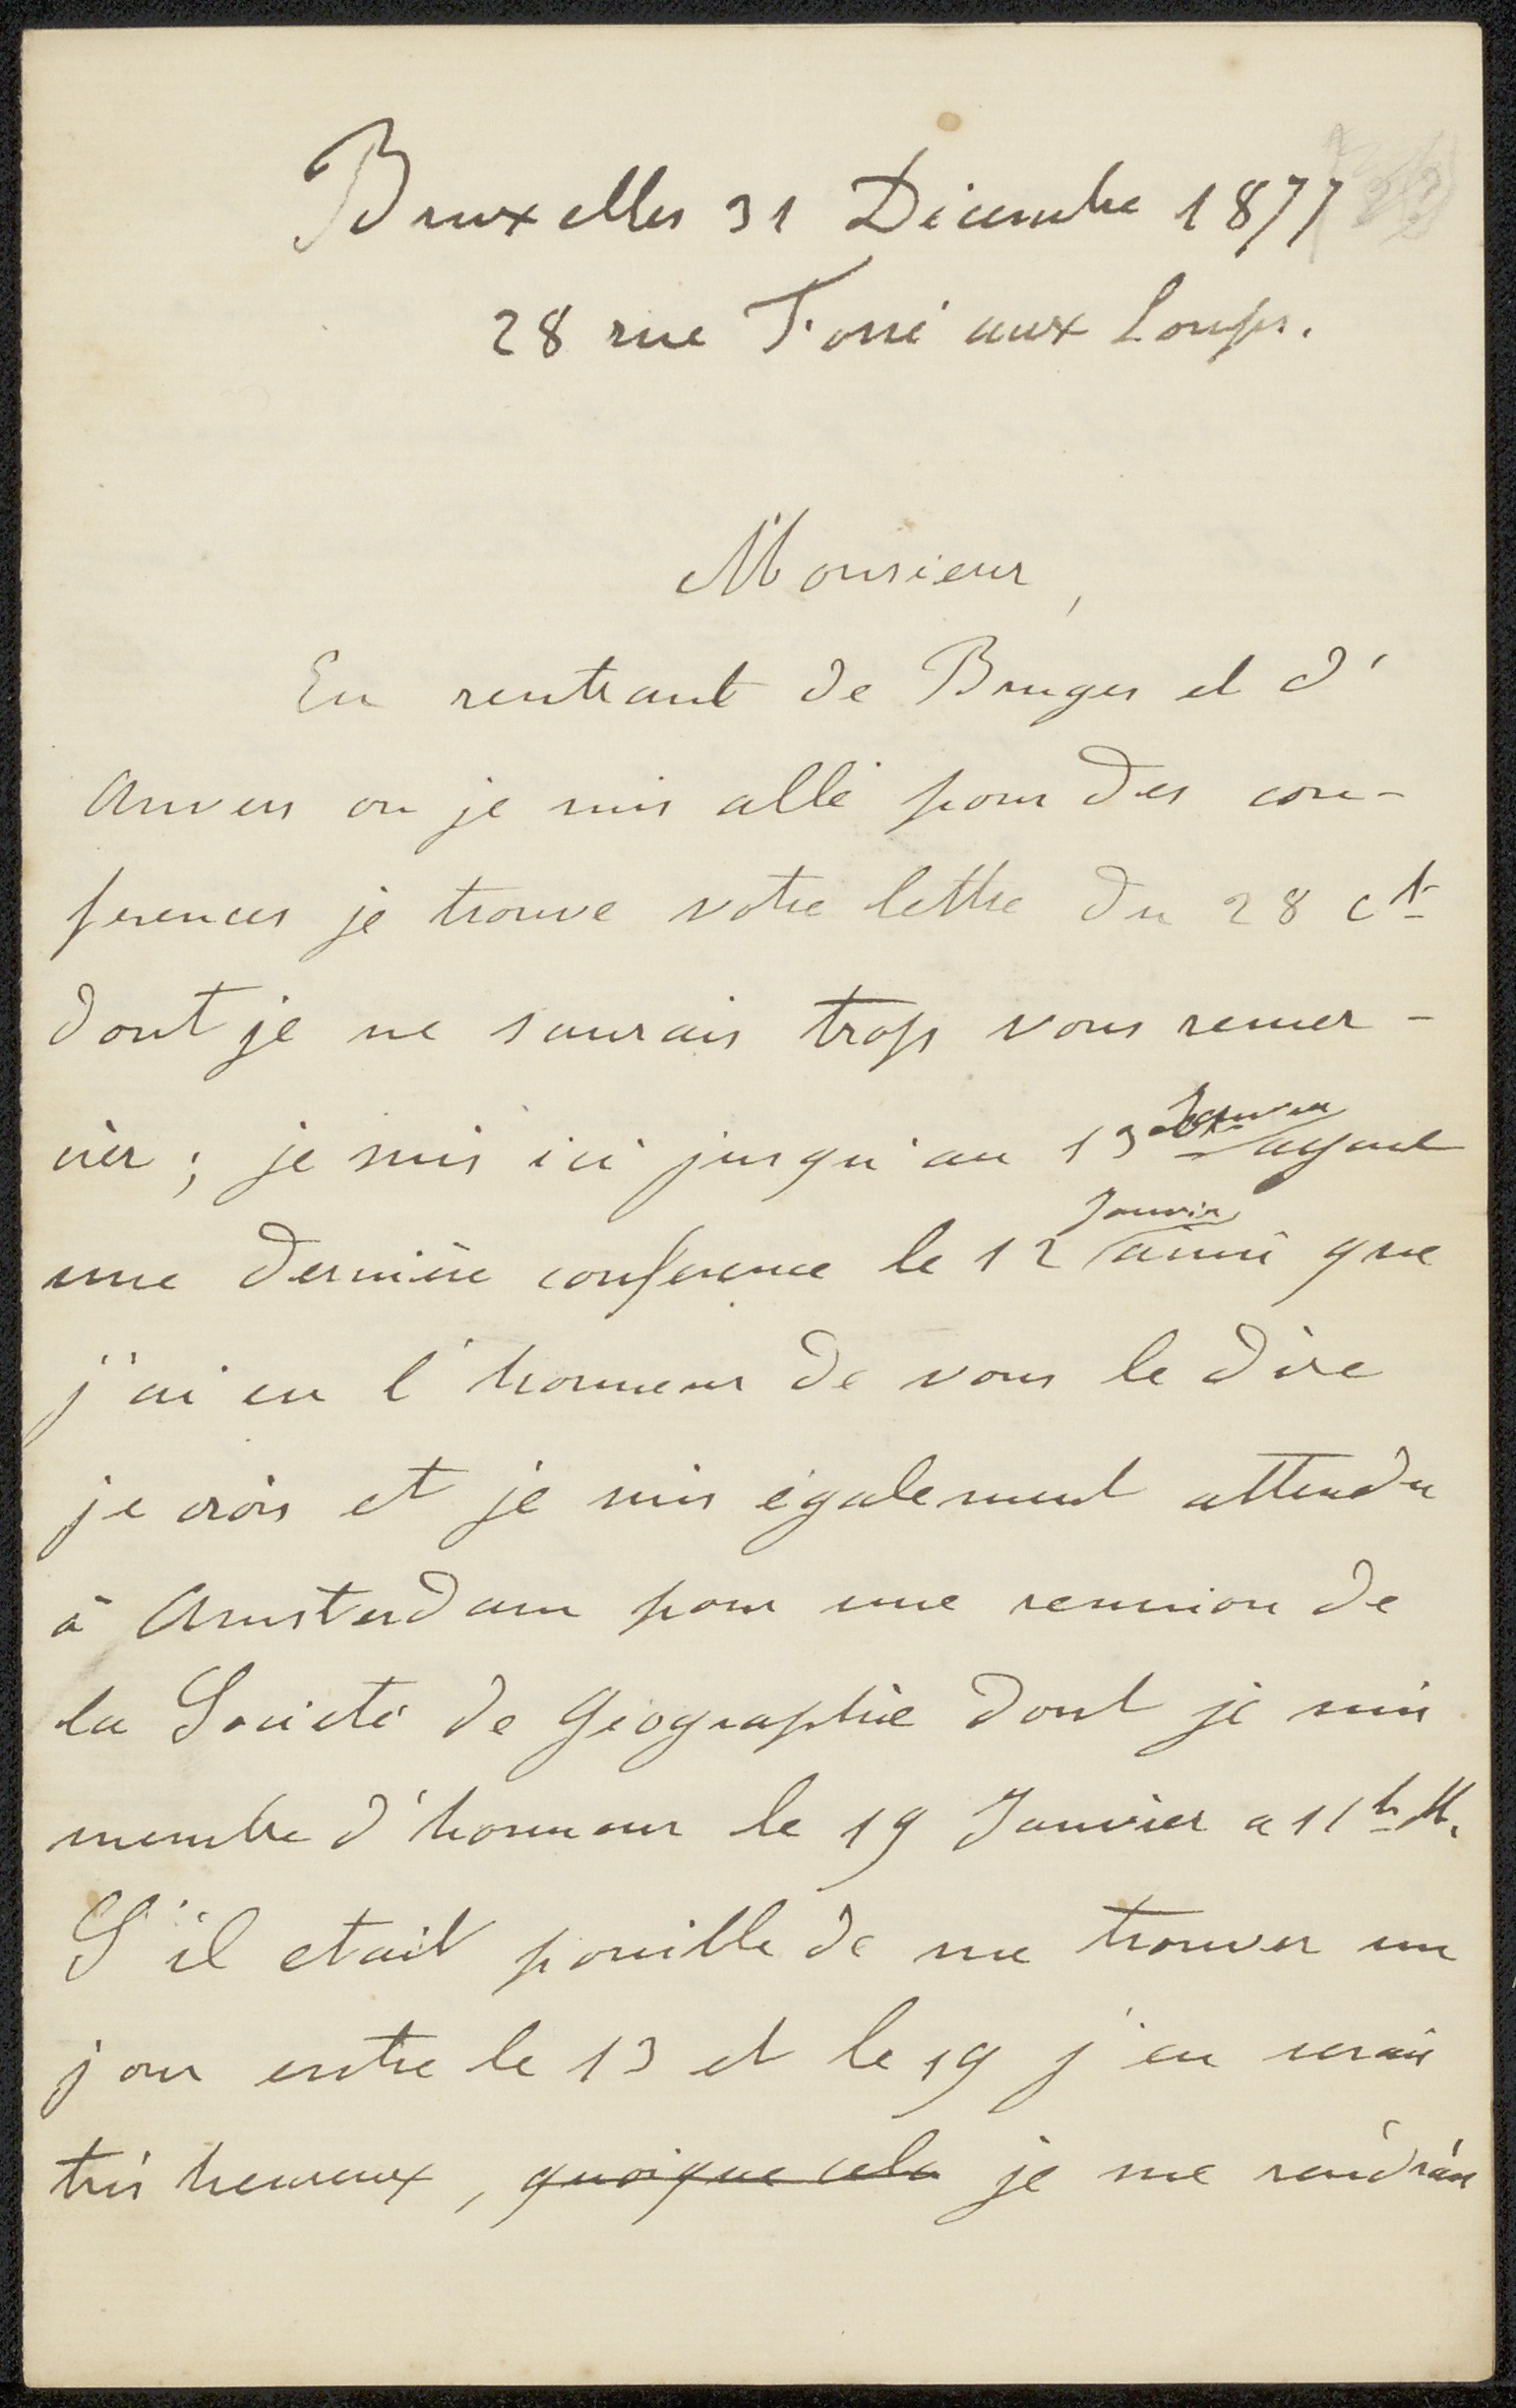 Bruxelles 31 Décembre 1877
28 rue Fossé aux Loups.
Monsieur,
En rentrant de Bruges et d'
Anvers ou je suis allé pour des con-
ferences je trouve votre lettre du 28 ct
dont je ne saurais trop vous remer-
cier; je suis ici jusqu'au 13 Janvier ayant
une dernière conference le 12 Janvier ainsi que
j'ai eu l'honneur de vous le dire
je crois et je suis également attendu
à Amsterdam pour une reunion de
la Société de Géographie dont je suis
membre d'honneur le 19 Janvier a 11h M.
S'il etait possible de me trouver un
jour entre le 13 et le 19 j'en serais
très heureux, quoique cela je me rendrais